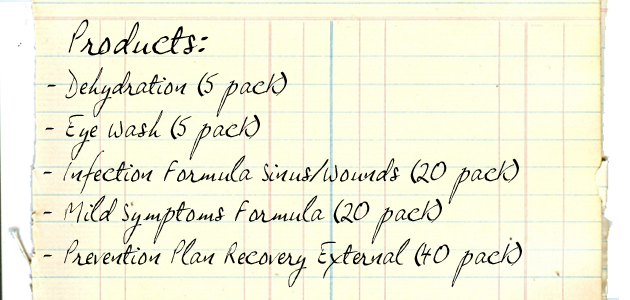 Products:
- Dehydration (5 pack)
- Eye Wash (5 pack)
- Infection Formula Sinus/Wounds (20 pack)
- Mild Symptoms Formula (20 pack)
- Prevention Plan Recovery External (40 pack)